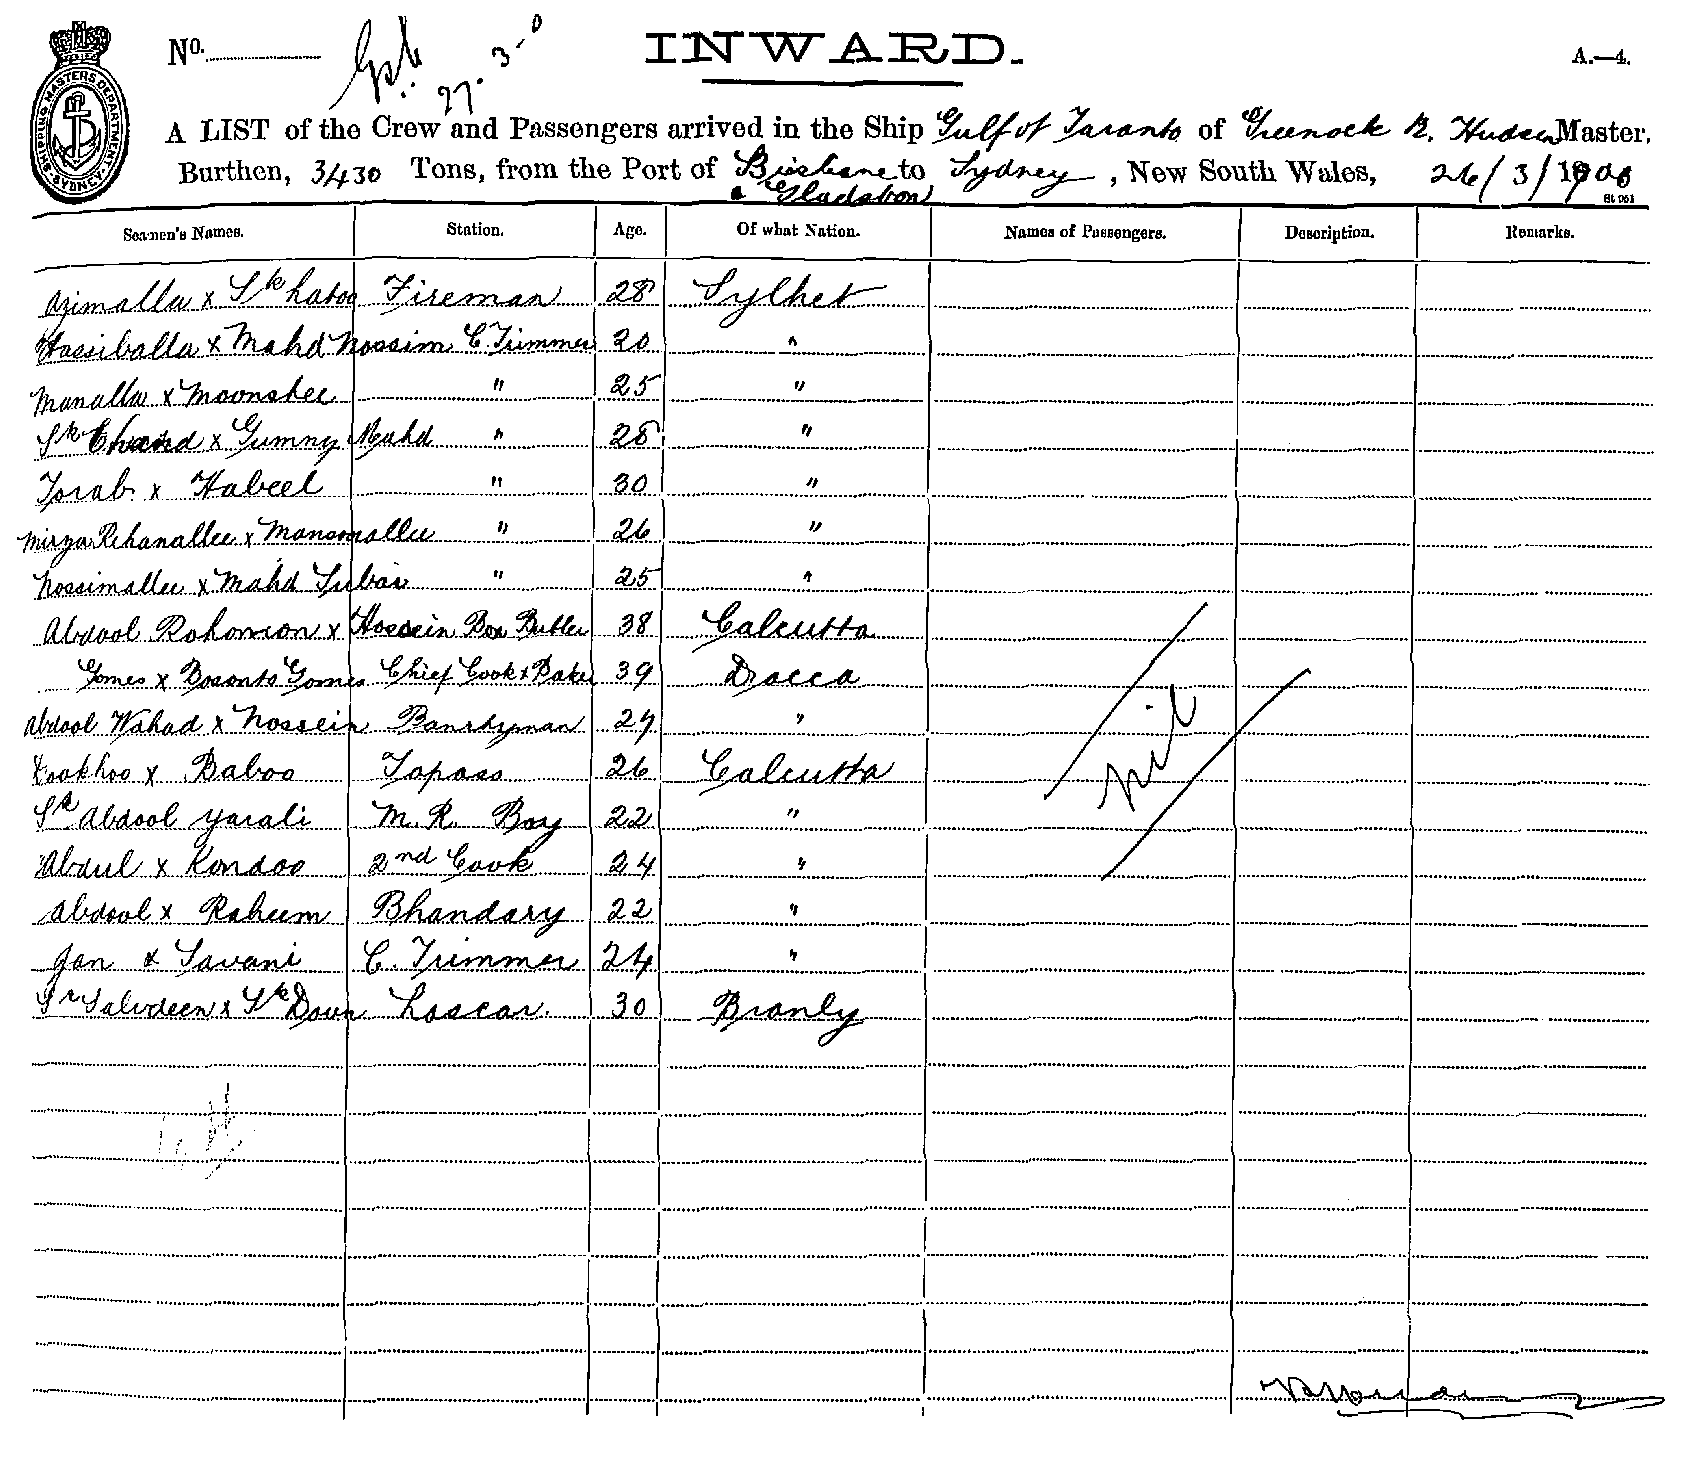 No.
27.3-0
INWARD.
A.—4.
SHIPPING MASTERS DEPARTMENT SYDNEY
A LIST of the Crew and Passengers arrived in the Ship Gulf of Taranto of Greenock R. Hudson Master,
Burthen, 3430 Tons, from the Port of Brisbane to Sydney, New South Wales, 26/3/1906
& Gladston
Seamen's Names. Station. Age. Of what Nation. Names of Passengers. Description. Remarks.
Azimalla x Sk Fireman 28 Sylhet
Hassiballa x Mahd Nossim C. Trimmer 20 "
Manalla x Moonshee " 25 "
Sk Chand x Gumny Mahd " 28 "
Torab x Habeel " 30 "
Mirza Rehanallee x Mansorallee " 26 "
Nossimallee x Mahd " 25 "
Abdool Rohomon x Hossein Box Butler 38 Calcutta
Gomes x Bosonto Gomes Chief Cook & Baker 39 Dacca
Abdool Wahad x Hossein 29 "
x Baboo Topass 26 Calcutta
Sk Abdool Yarali M. R. Boy 22 "
Abdul x Kondoo 2nd Cook 24 "
Abdool x Raheem Bhandary 22 "
Jan x Savani C. Trimmer 24 "
Sk x Sk Lascar. 30
nil